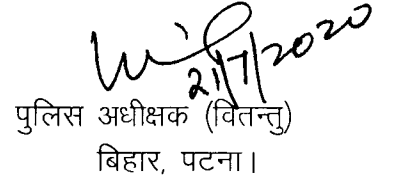 21/7/2020
पुलिस अधीक्षक (वितन्तु)
बिहार, पटना।